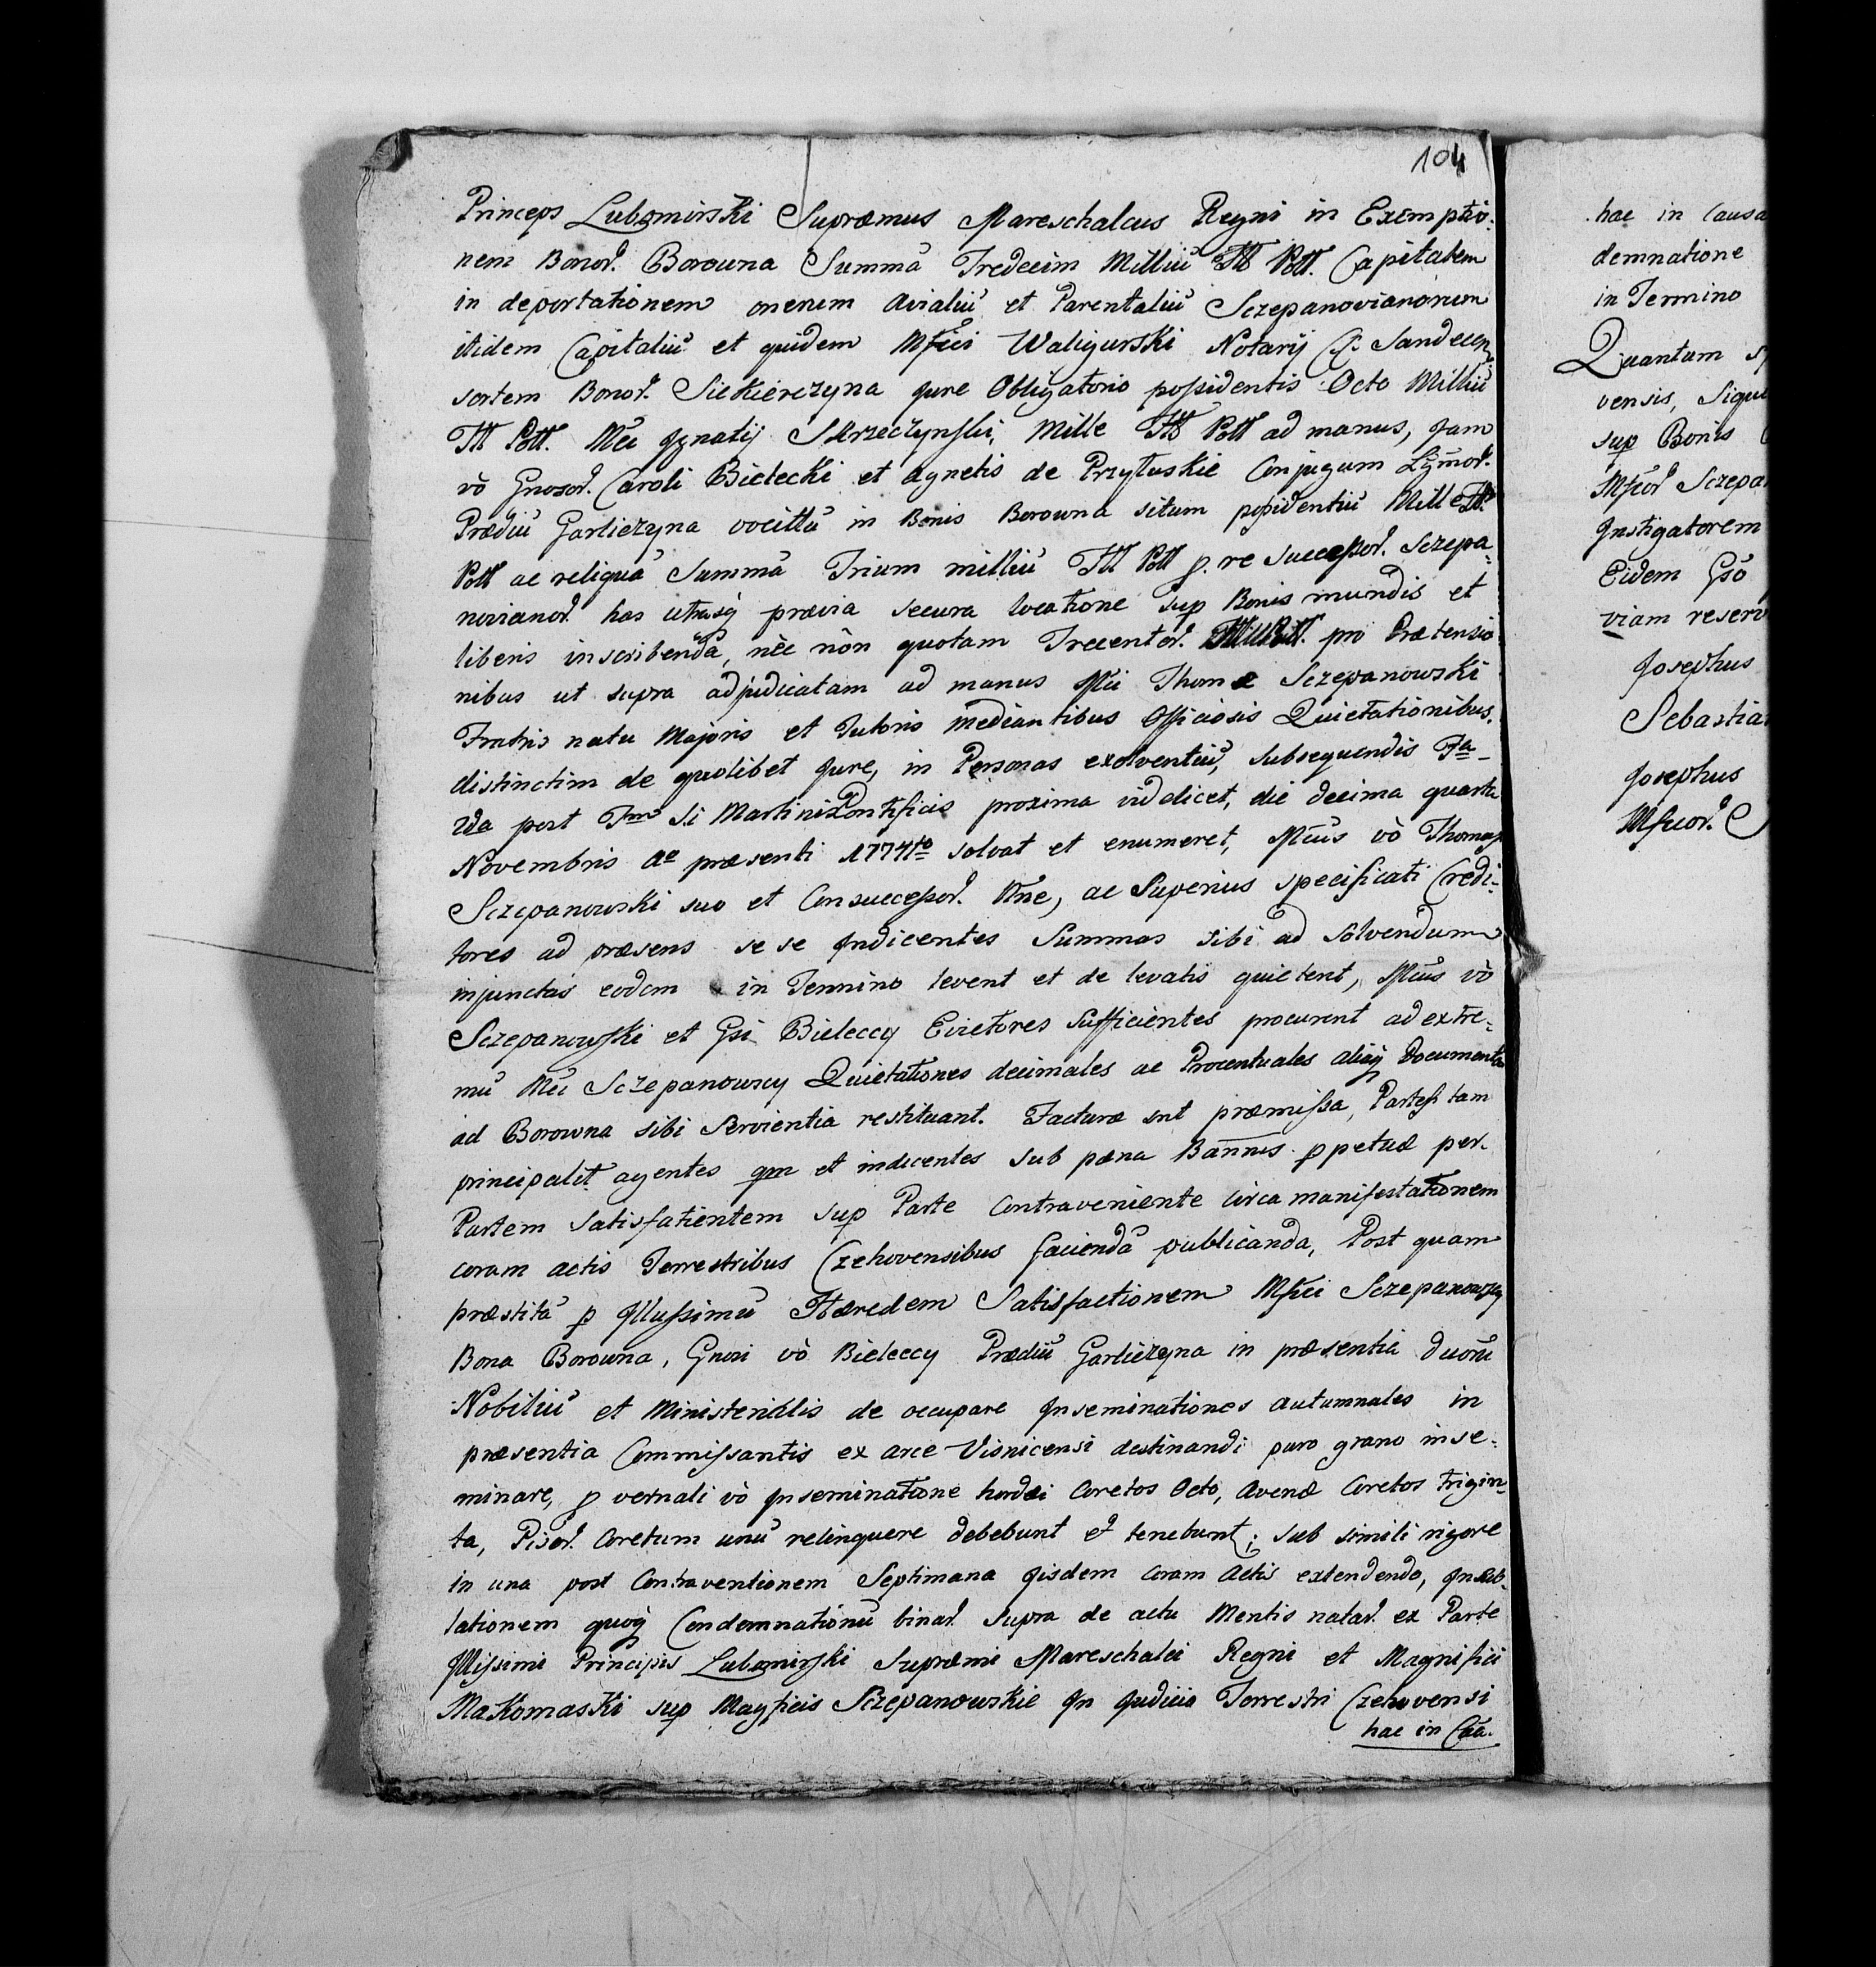 104
Princeps Lubomirski Supræmus Mareschalcus Regni in Exemptio-
nem Bonor. Borowna Summã Tredecim Milliũ Fll Poll. Capitalem
in deportationem onerum Avialiũ et Parentaliũ Sczepanovianorum
itidem Capitaliũ et quidem Mfici Waligurski Notarij C. Sandecen
sortem Bonor. Siekierczyna Jure Obligatorio possidentis Octo Milliũ
Fll Poll. Mci Ignatij Skrzeczynski, Mille Fll Poll ad manus, Jam
vò Gnosor. Caroli Bielecki et Agnetis de Przyłuskie Conjugum Lgmor.
Prædiũ Garliczyna vocittũ in Bonis Borowna situm possidentiũ Mille Fll.
Poll ac reliquã Summã Trium milliũ Fll Poll p. re Successor. Sczepa-
novianor. has utrasq prævia secura locatione sup Bonis mundis et
liberis inscribendã, nèc nòn quotam Trecentor. Fll Poll. pro Prætensio
nibus ut supra adjudicatam ad manus Mci Thomæ Sczepanowski
Fratris natu Majoris et Tutoris mediantibus Officiosis Quietationibus,
distinctim de quolibet Jure, in Personas exolventiũ, subsequendis Fa-
2da post Fm S.i Martini Pontificis proxima videlicet, die decima quarta
Novembris Ao præsenti 1774to solvat et enumeret, Mcus vò Thomas
Sczepanowski suo et Consuccessor. Nne, ac Superius specificati Credi-
tores ad præsens se se Indicentes Summas sibi ad solvendum
injunctas eodem in Termino levent et de levatis quietent, Mcus vò
Sczepanowski et Gsi Bieleccy Evictores sufficientes procurent ad extre-
mũ Mci Sczepanowscy Quietationes decimales ac Procentuales aliaq Documenta
ad Borowna sibi Servientia restituant. Facturæ snt præmissa, Partes tam
principalit agentes qm et indicentes sub pæna Bannis ppetuæ per
Partem satisfatientem sup Parte Contraveniente circa manifestationem
coram actis Terrestribus Czehovensibus faciendã publicanda, Post quam
præstitã p Illussimũ Hæredem Satisfactionem Mfici Sczepanowscy
Bona Borowna, Gnosi vò Bieleccy Prædiũ Garliczyna in præsentia duorũ
Nobiliũ et Ministerialis de occupare Inseminationes autumnales in
præsentia Commissantis ex arce Visnicensi destinandi puro grano inse-
minare, p vernali vò Inseminatione hordei Coretos Octo, Avenæ Coretos trigin-
ta, Pisor. Coretum unũ relinquere debebunt et tenebunt; sub simili rigore
in una post Contraventionem Septimana Iisdem Coram Actis extendendo,
lationem quoq Condemnationũ binar. supra de actu Mentis natar. ex Parte
Illissimi Principis Lubomirski Supræmi Mareschalci Regni et Magnifici
Makomaski sup Magficis Sczepanowskie In Judicio Terrestri Czehovensi
hac in Cãa.
hac in Causa
demnatione
in Termino
Quantum
vensis,
sup Bonis
Mficor Sczepa
Instigatorem
Eidem Gso
viam reserv
Josephus
Sebastia
Josephus
Mficor.